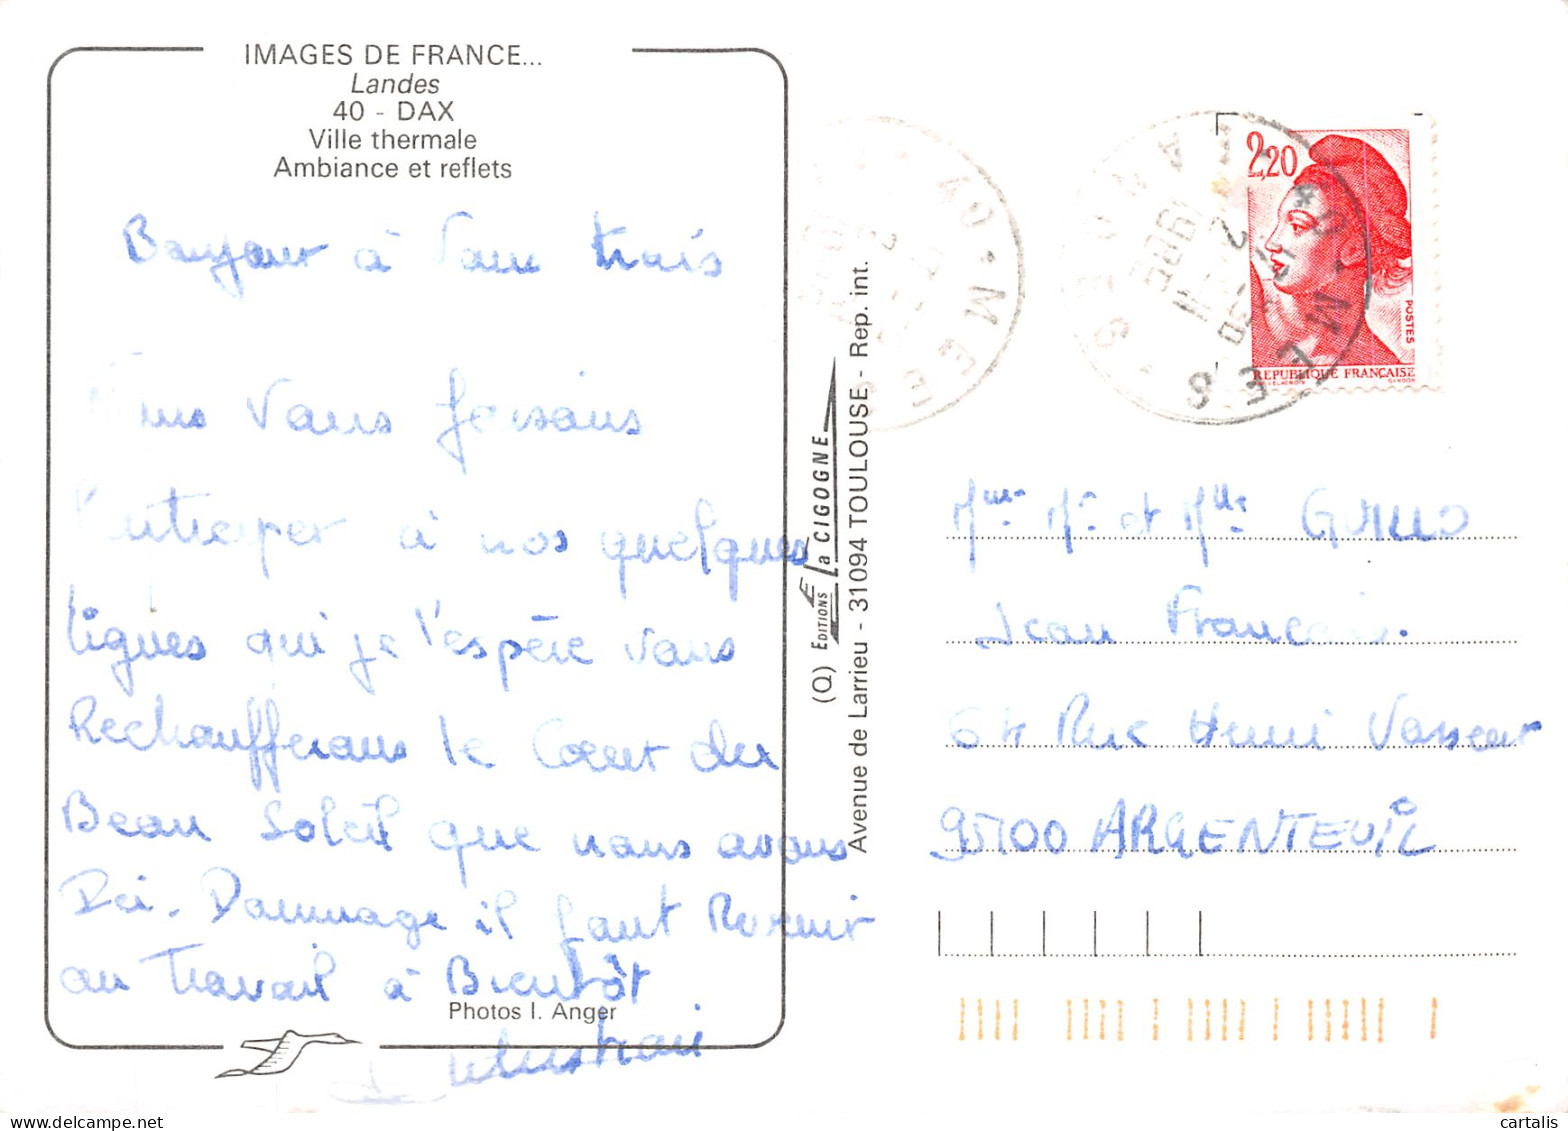 IMAGES DE FRANCE...
Landes
40 - DAX
Ville thermale
Ambiance et reflets
Bonjour à Vous trois
Nous Vous faisons
à nos quelques
lignes qui je l'espère vous
Rechaufferons le Coeur du
Beau Soleil que nous avons
Ici. Dommage il faut Revenir
au Travail à Bientôt
Photos I. Anger
(Q) EDITIONS La CIGOGNE
Avenue de Larrieu - 31094 TOULOUSE - Rep. int.
2,20
POSTES
REPUBLIQUE FRANÇAISE
Mme Mr et Mlle GUILLO
Jean François.
64 Rue Henri Vasseur
95100 ARGENTEUIL